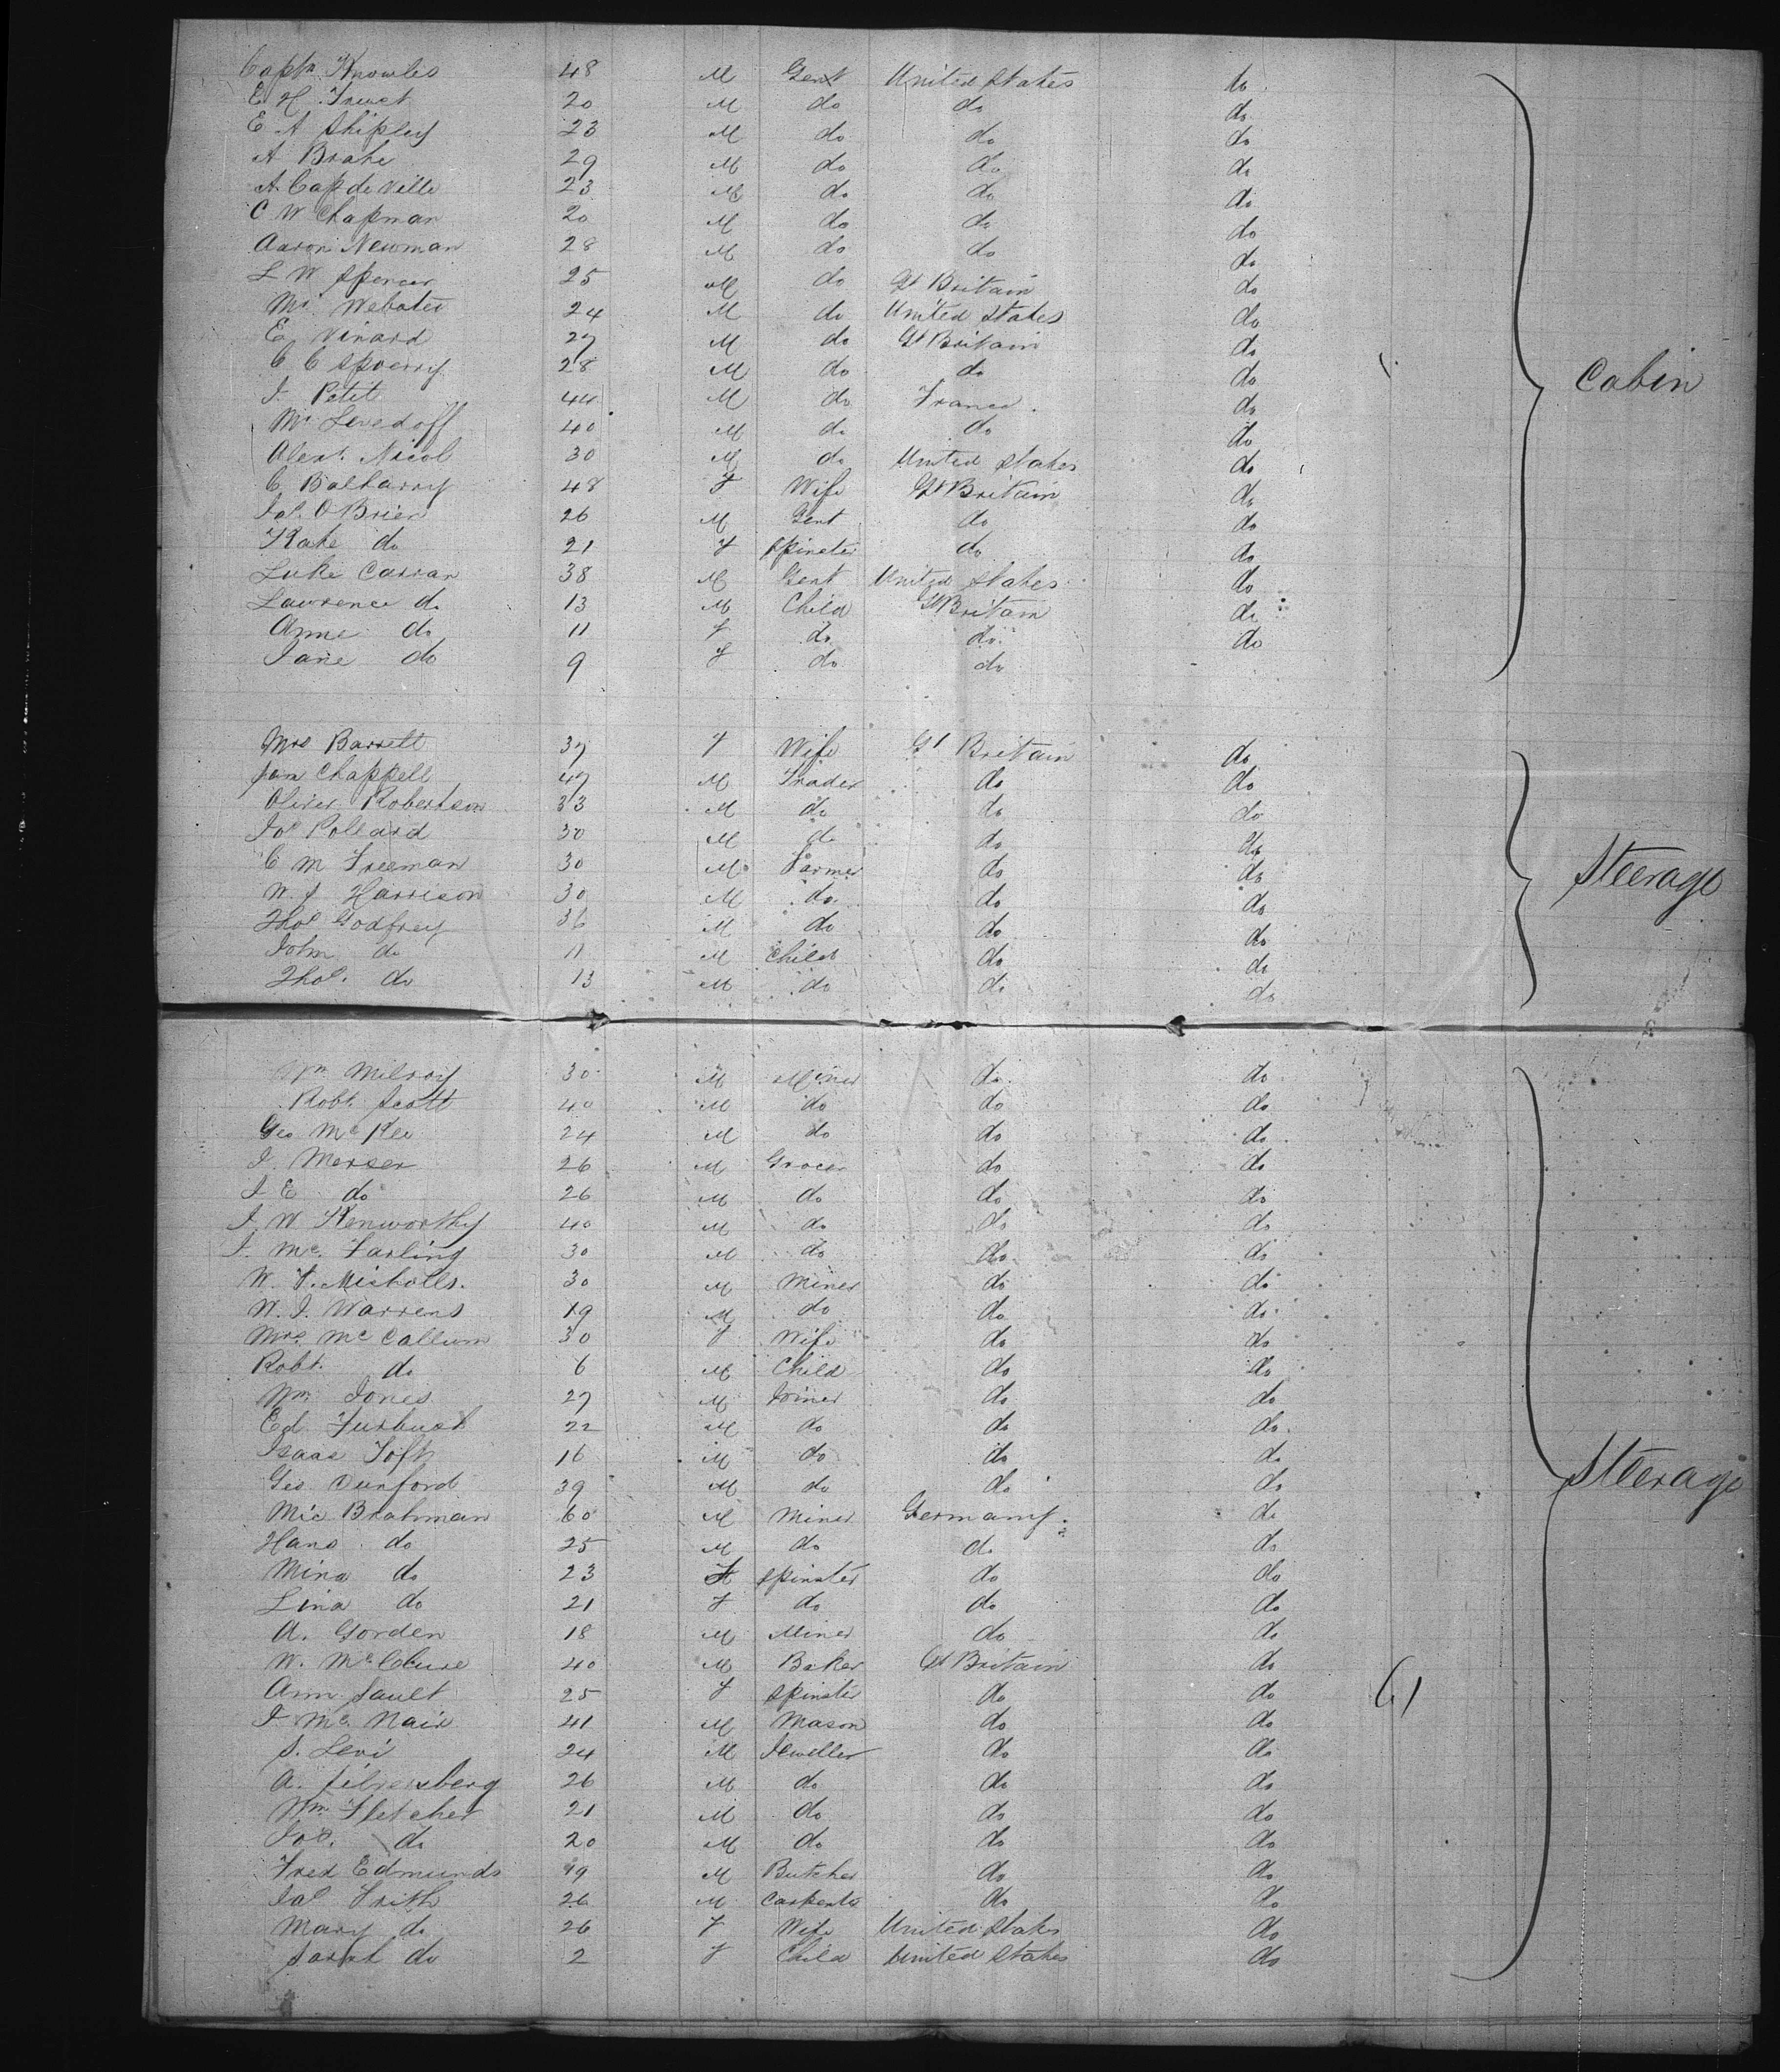 Captn Knowles 48 M Gent United States do
E. H. Truet 20 M do do do
E A Shipley 23 M do do do
A Brahe 29 M do do do
A. Capdeville 23 M do do do
C W Chapman 20 M do do do
Aaron Newman 28 M do do do
L W Spencer 25 M do Gt Britain do
Mr Webster 24 M do United States do
E Vinard 27 M do Gt Britain do
C C Spoerry 28 M do do do
J. Petit 44 M do France do Cabin
Mr Levedoff 40 M do do do
Alexr. Nicol 30 M do United States do
C Balharry 48 F Wife Gt Britain do
Jas. O Brien 26 M Gent do do
Kate do 21 F Spinster do do
Luke Carran 38 M Gent United States do
Lawrence do 13 M Child Gt Britain do
Anne do 11 F do do do
Jane do 9 F do do
Mrs Barrett 37 F Wife Gt Britain do
Sam Chappell 47 M Trader do do
Oliver Robertson 33 M do do do
Jos Pollard 30 M do do do
C M Freeman 30 M Farmer do do Steerage
W. J. Harrison 30 M do do do
Thos Godfrey 36 M do do do
John do 11 M Child do do
Thos. do 13 M do do do
Wm Milroy 30 M Miner do do
Robt. Scott 40 M do do do
Geo McKee 24 M do do do
J. Merser 26 M Grocer do do
J E do 26 M do do do
J. W Kenworthy 40 M do do do
J. Mc. Farling 30 M do do do
W. F. Micholls. 30 M Miner do do
W. J. Warrens 19 M do do do
Mrs Mc Callum 30 F Wife do do
Robt. do 6 M Child do do
Wm Jones 27 M Joiner do do
Ed. Furbush 22 M do do do
Isaac Toft 16 M do do do
Geo Dunford 39 M do do do Steerage
Mic Brahman 60 M Miner Germany do
Hans do 25 M do do do
Mina do 23 F Spinster do do
Lina do 21 F do do do
A. Gorden 18 M Miner do do
W. McClure 40 M Baker Gt Britain do
Ann Sault 25 F Spinster do do 61
J. Mc. Nair 41 M Mason do do
S. Levi 24 M Jeweller do do
A. Silversberg 26 M do do do
Wm Fletcher 21 M do do do
Jos. do 20 M do do do
Fred Edmunds 19 M Butcher do do
Jas Frith 26 M Carpenter do do
Mary do 26 F Wife United States do
Sarah do 2 F Child United States do